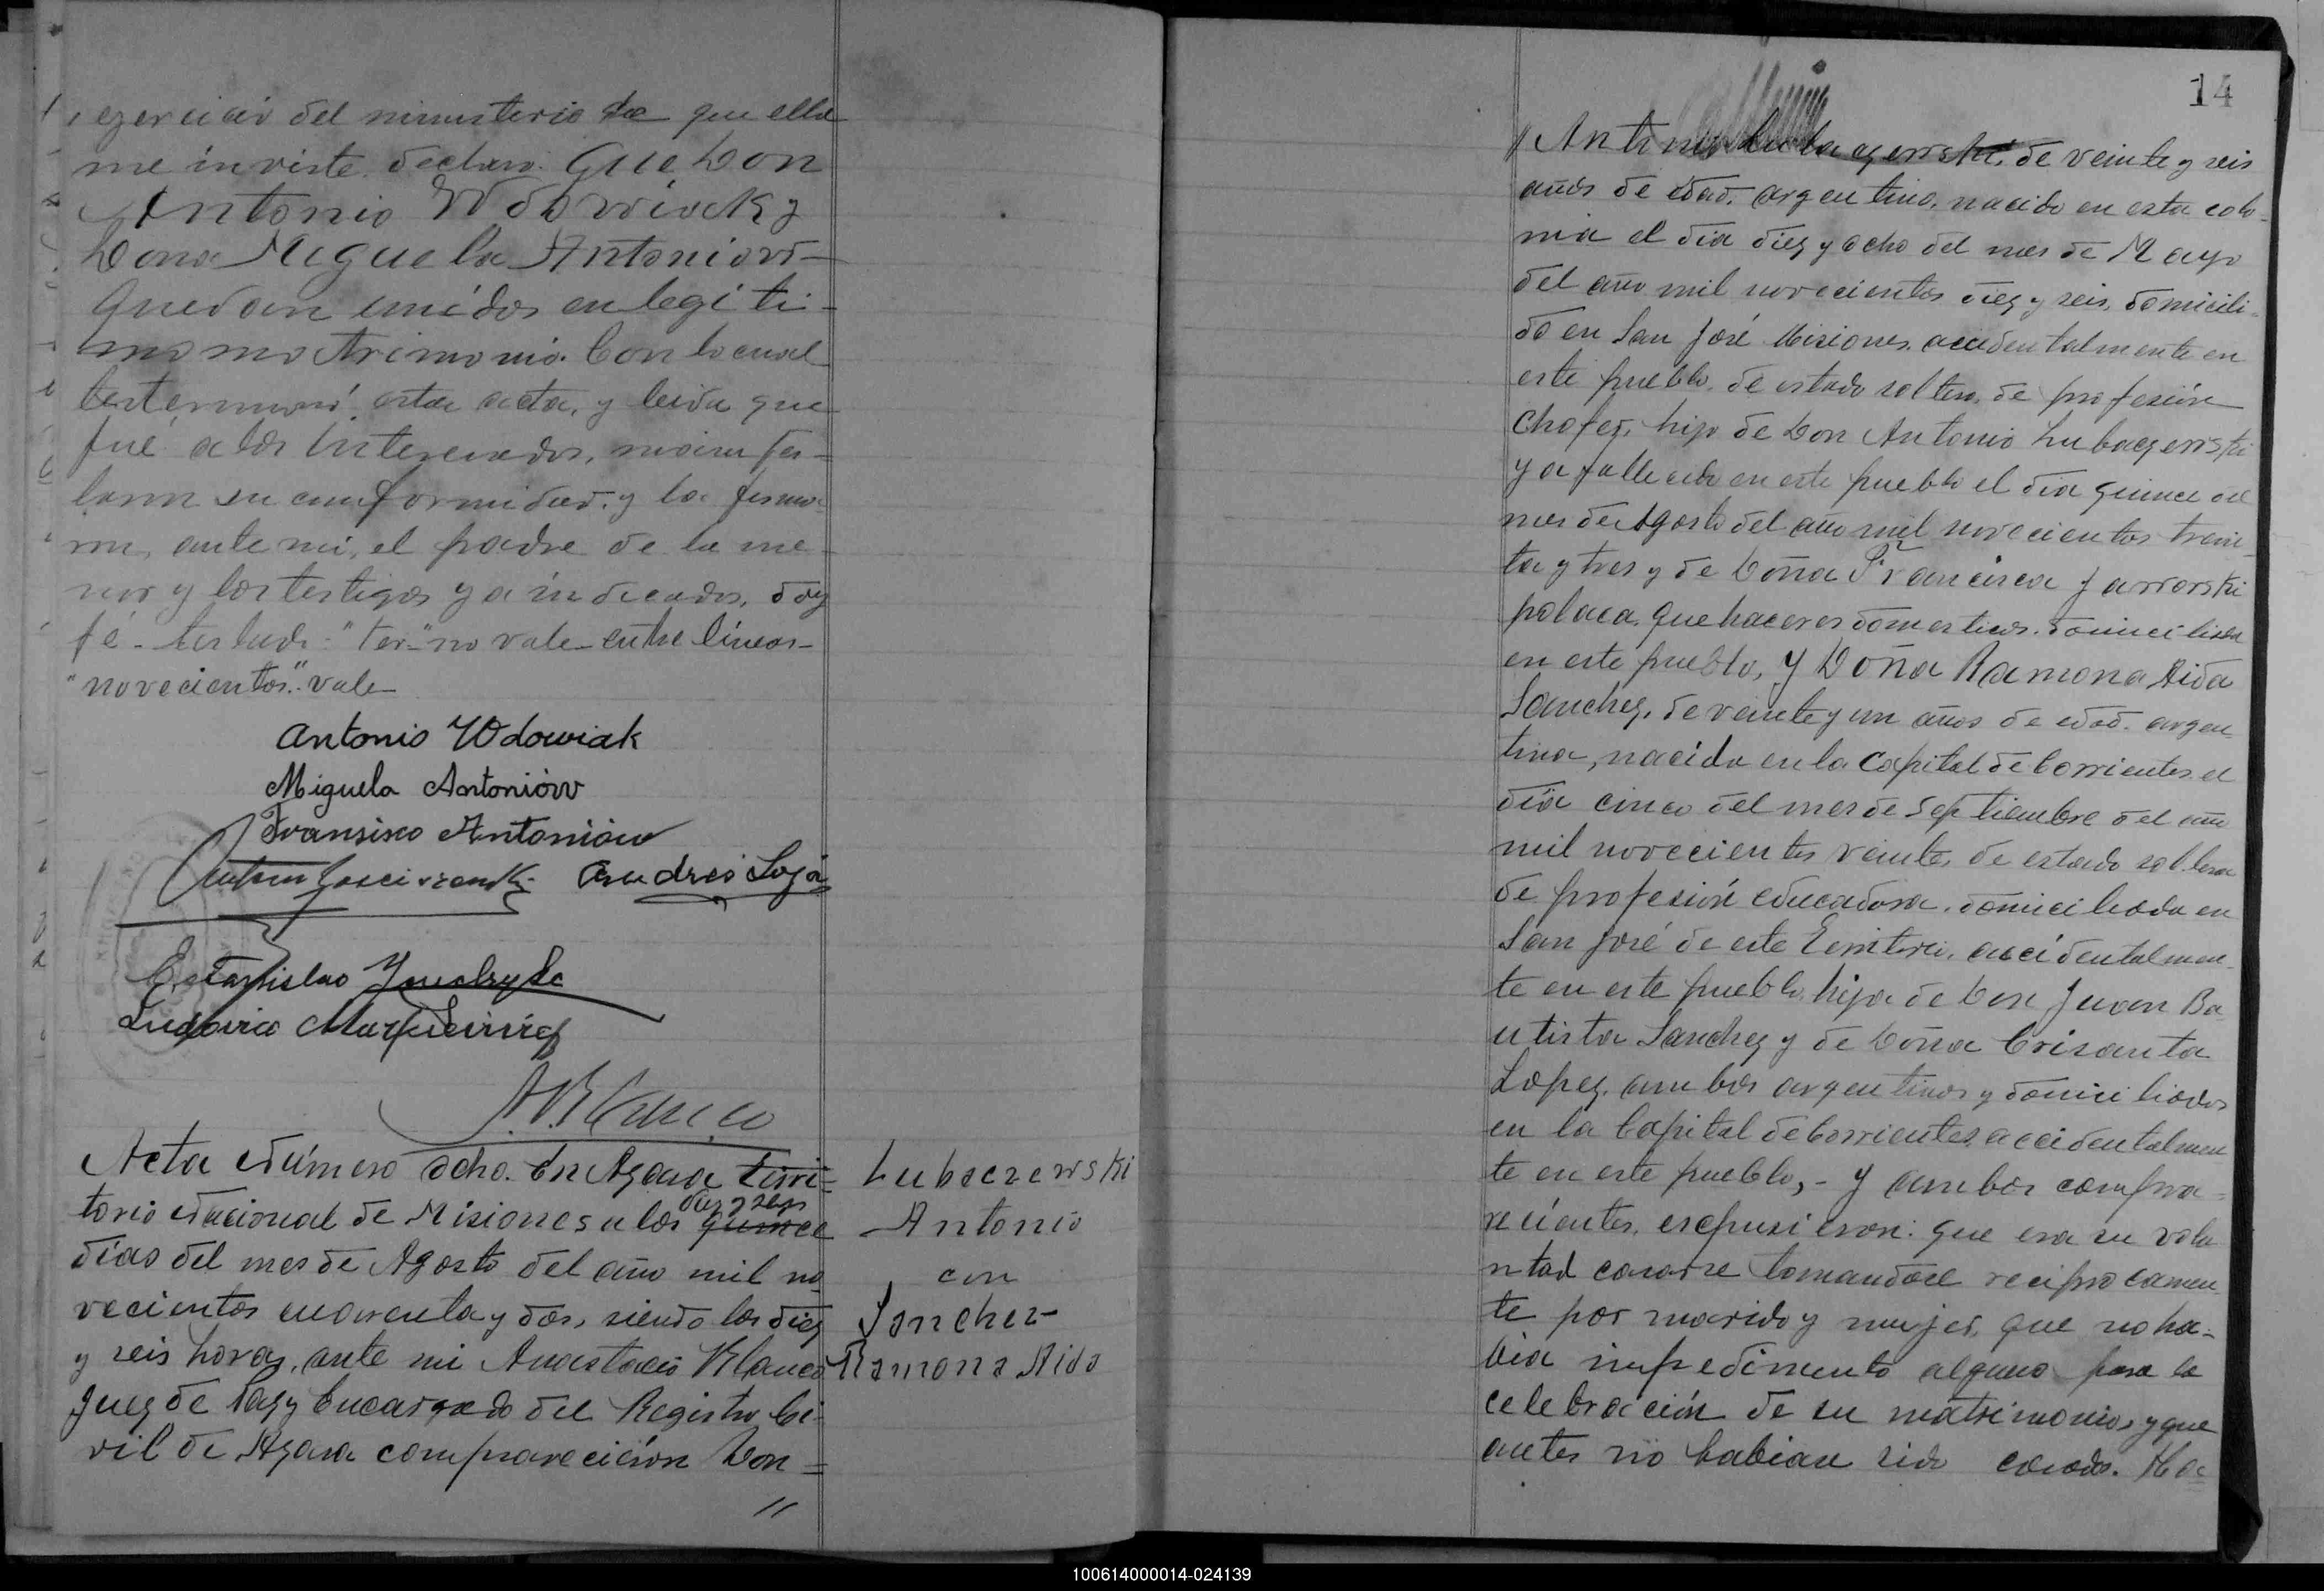 ejercicio del ministerio de que ella
me inviste declaro: Que Don
Antonio Wdowiak y
Dona Miguela Antoniow
quedan unidos en legiti-
mo matrimonio. Con lo cual
se terminó esta acta, y leida que
fué a los interesados, manifes-
taron su conformidad. y la firma-
ron, ante mi, el padre de la me-
nor y los testigos ya indicados, doy
fé - testado: "ter" no vale - entre líneas -
"novecientos": vale
Antonio Wdowiak
Miguela Antoniów
Fransisco Antoniów
Andrés Soja
Estanislao
Ludovico
A. Blanco
Acta Número ocho. En Azara Terri=
diez y seis
torio Nacional de Misiones a los quince
días del mes de Agosto del año mil no
vecientos cuarenta y dos, siendo las diez
y seis horas, ante mi Anastacio Blanco
Juez de Paz y Encargado del Registro Ci-
vil de Azara comparecieron Don =
//
Lubaczewski
Antonio
con
Sanchez-
Ramona Aida
14
// Antonio Lubaczewski, de veinte y seis
años de edad, argentino, nacido en esta colo-
nia el día diez y ocho del mes de Mayo
del año mil novecientos diez y seis, domicili-
do en San José Misiones, accidentalmente en
este pueblo, de estado soltero, de profesión
chofer, hijo de Don Antonio Lubaczewski
ya fallecido en este pueblo el día quince del
mes de Agosto del año mil novecientos trein-
ta y tres y de Doña Francisca Jaworski
polaca, quehaceres domesticos, domiciliada
en este pueblo, y Doña Ramona Aida
Sanchez, de veinte y un años de edad, argen-
tina, nacida en la Capital de Corrientes el
día cinco del mes de Septiembre del año
mil novecientos veinte, de estado soltera
de profesión educadora, domiciliada en
San José de este Territorio, accidentalmen-
te en este pueblo, hija de Don Juan Ba-
utista Sanchez y de Doña Crisanta
Lopez, ambos argentinos y domiciliados
en la Capital de Corrientes, accidentalmen
te en este pueblo, - y ambos compa=
recientes, expusieron: que era su volu
ntad casarse tomandose reciprocamen
te por marido y mujer, que no ha=
bia impedimento alguno para la
celebración de su matrimonio, y que
antes no habian sido casados. Ha=
100614000014-024139